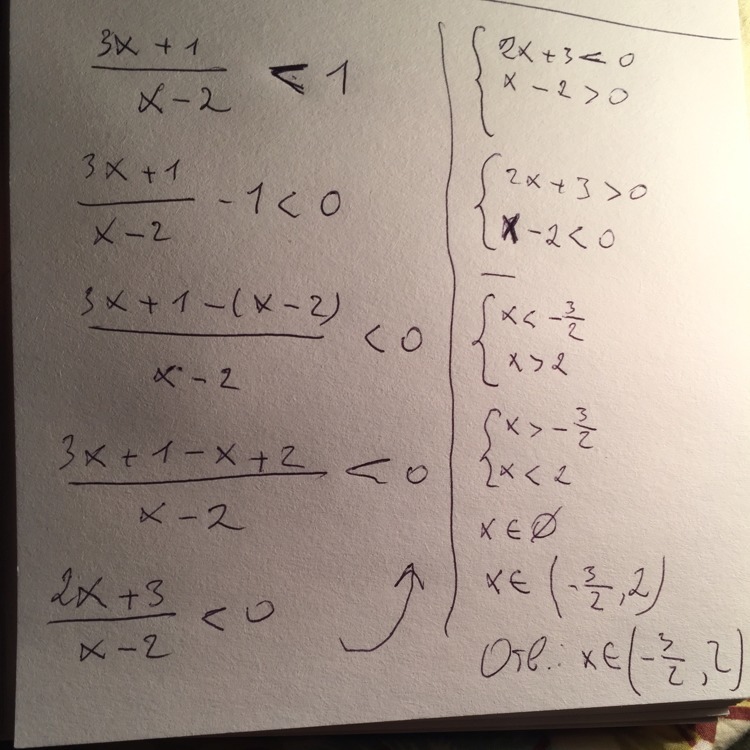 3x + 1
x - 2
< 1
3x + 1
x - 2
- 1 < 0
3x + 1 - (x - 2)
x - 2
< 0
3x + 1 - x + 2
x - 2
< 0
2x + 3
x - 2
< 0
{ 2x + 3 < 0
x - 2 > 0
{ 2x + 3 > 0
x - 2 < 0
{ x < -3/2
x > 2
{ x > -3/2
x < 2
x ∈ ∅
x ∈ (-3/2, 2)
Отв.: x ∈ (-3/2, 2)